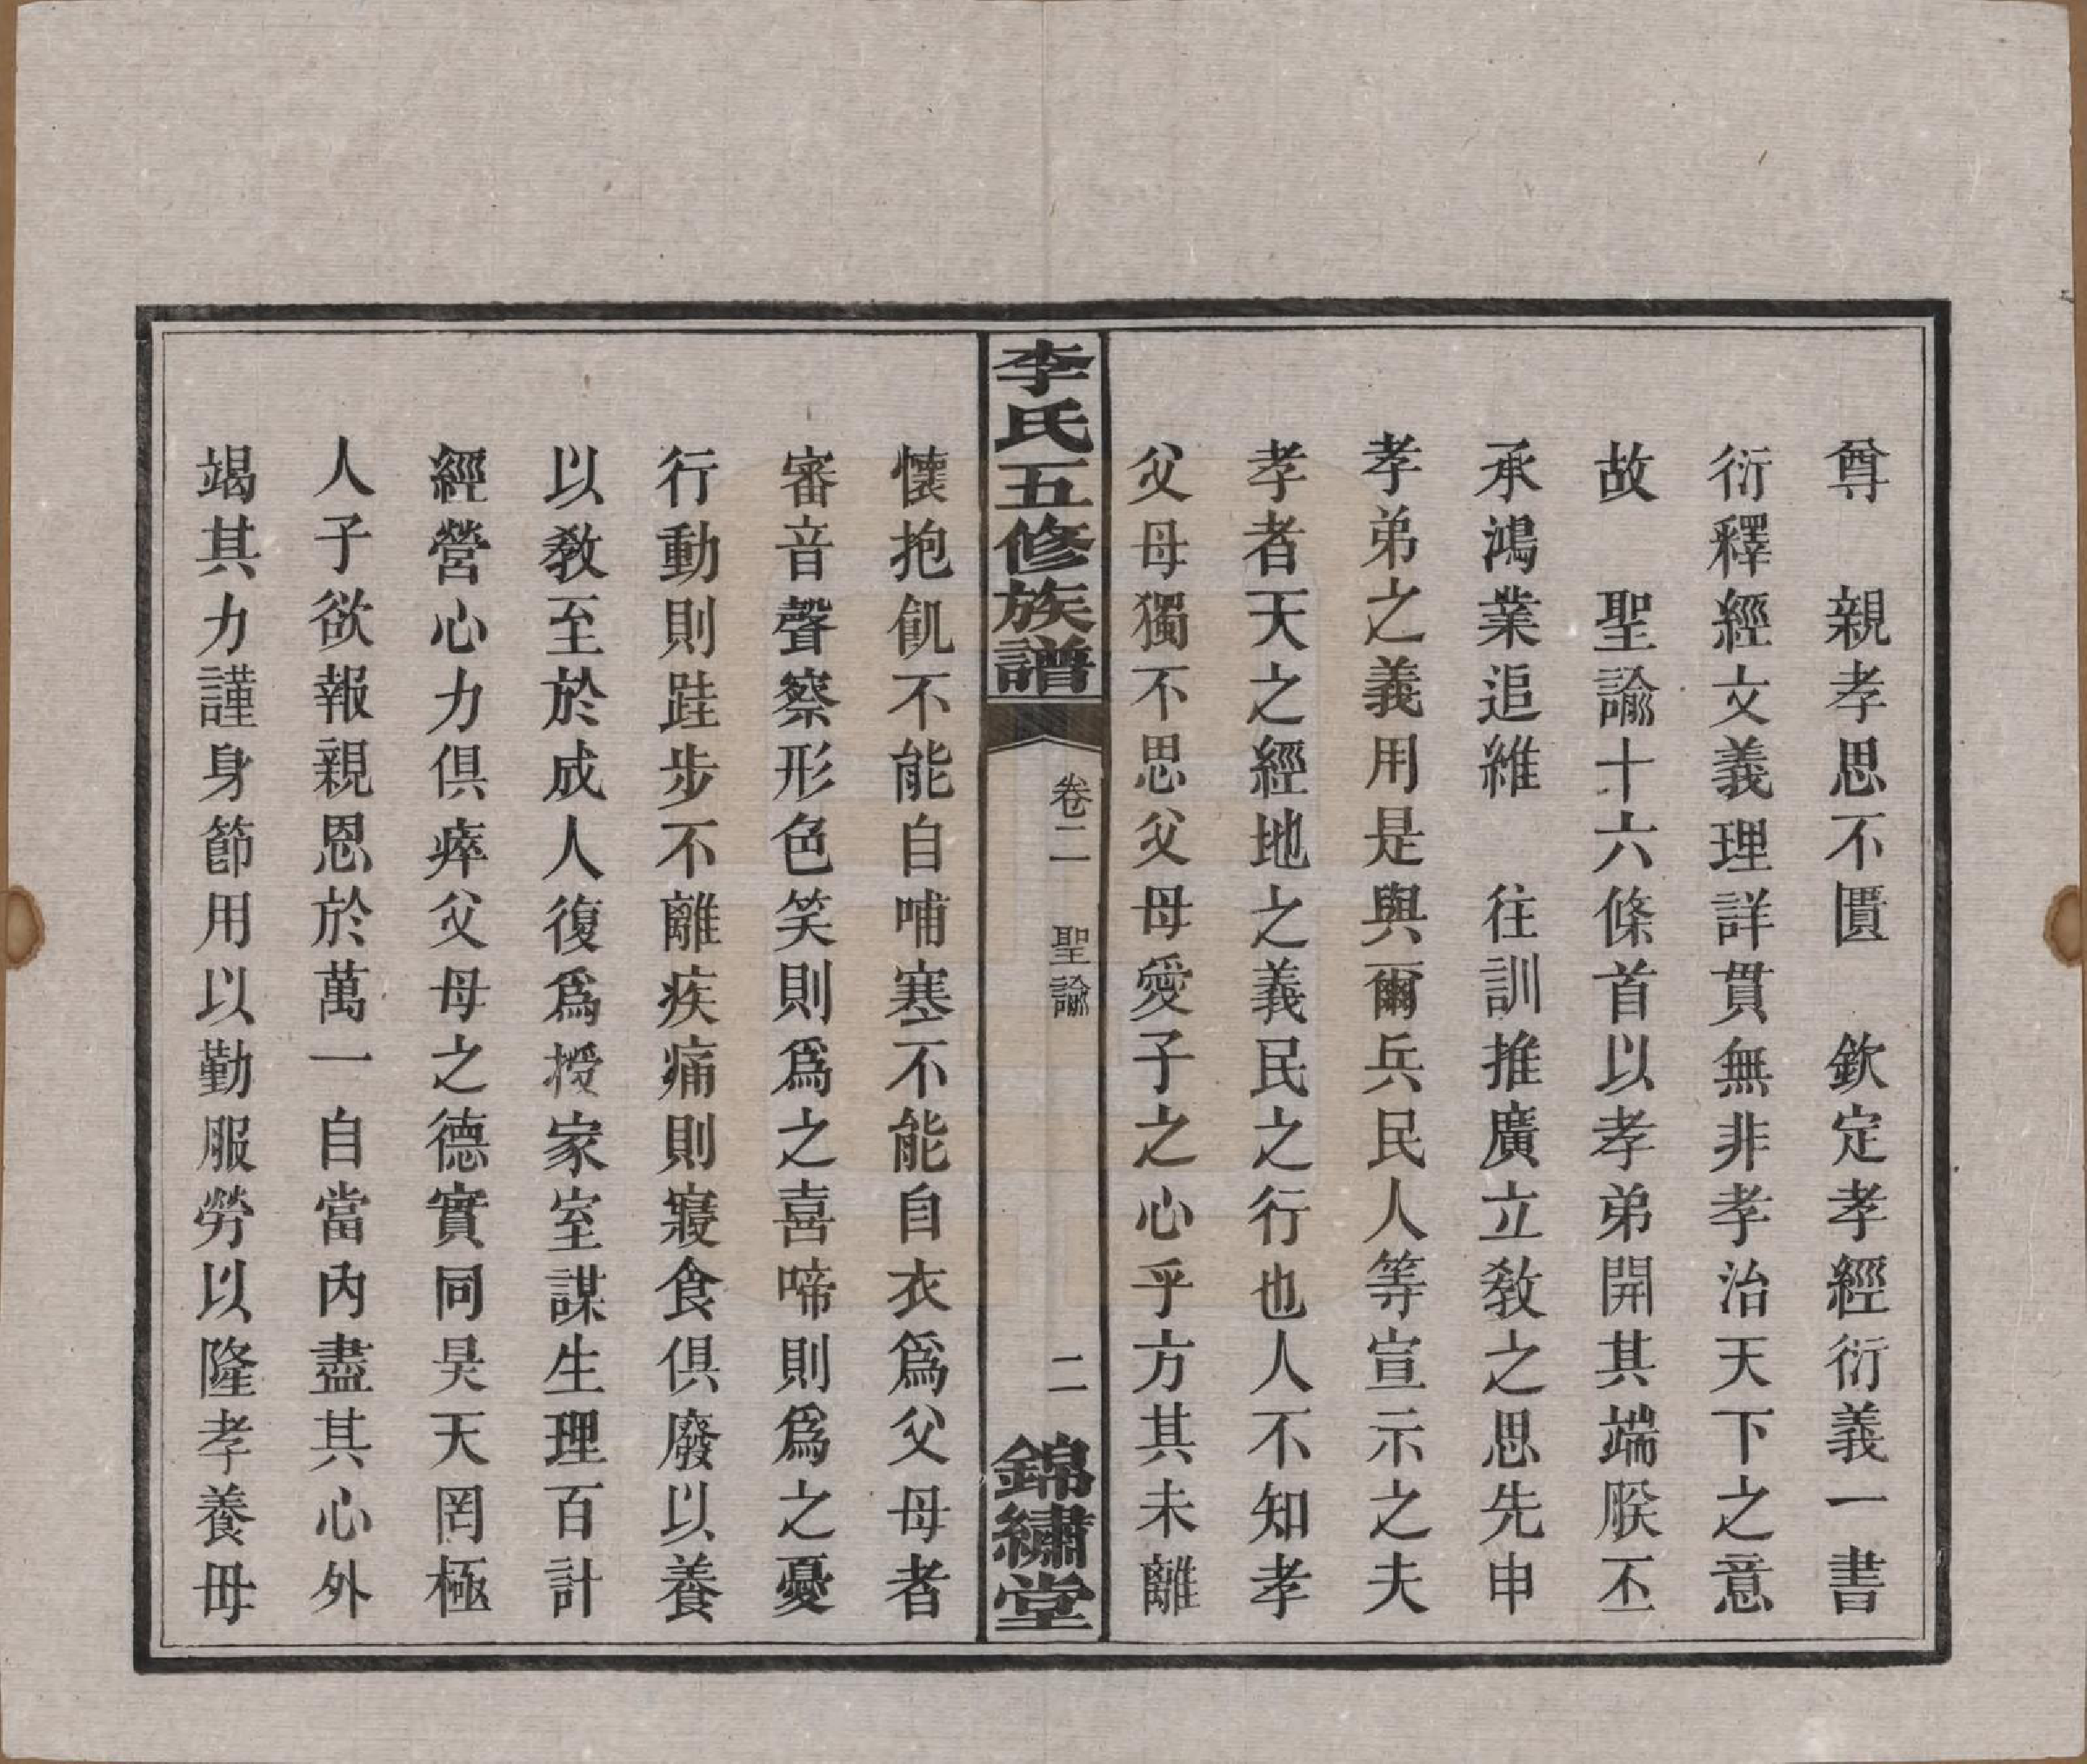 尊　親孝思不匱　欽定孝經衍義一書
衍釋經文義理詳貫無非孝治天下之意
故　聖諭十六條首以孝弟開其端朕丕
承鴻業追維　往訓推廣立敎之思先申
孝弟之義用是與爾兵民人等宣示之夫
孝者天之經地之義民之行也人不知孝
父母獨不思父母愛子之心乎方其未離
李氏五修族譜
卷二　聖諭
二
錦繡堂
懷抱飢不能自哺寒不能自衣爲父母者
審音聲察形色笑則爲之喜啼則爲之憂
行動則跬步不離疾痛則寢食俱廢以養
以敎至於成人復爲授家室謀生理百計
經營心力俱瘁父母之德實同昊天罔極
人子欲報親恩於萬一自當內盡其心外
竭其力謹身節用以勤服勞以隆孝養毋